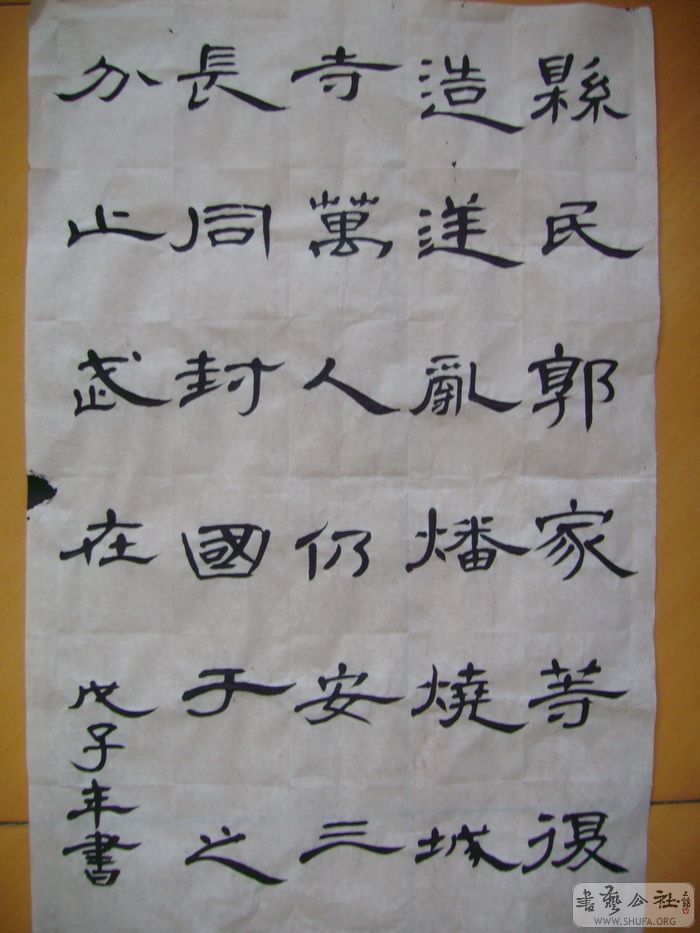 縣民郭家等復
造逆亂燔燒城
寺萬人仍安三
長同封國于之
分止武在
戊子年書
書藝公社
WWW.SHUFA.ORG